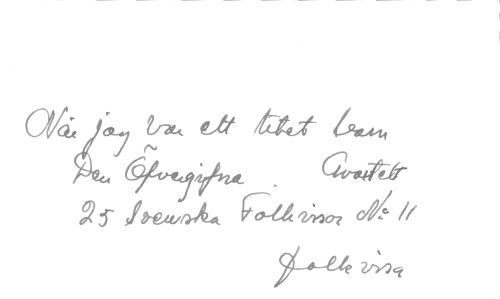 När jag var ett litet barn
Den Öfvergifna. Qvartett
25 Svenska Folkvisor No 11
Folkvisa